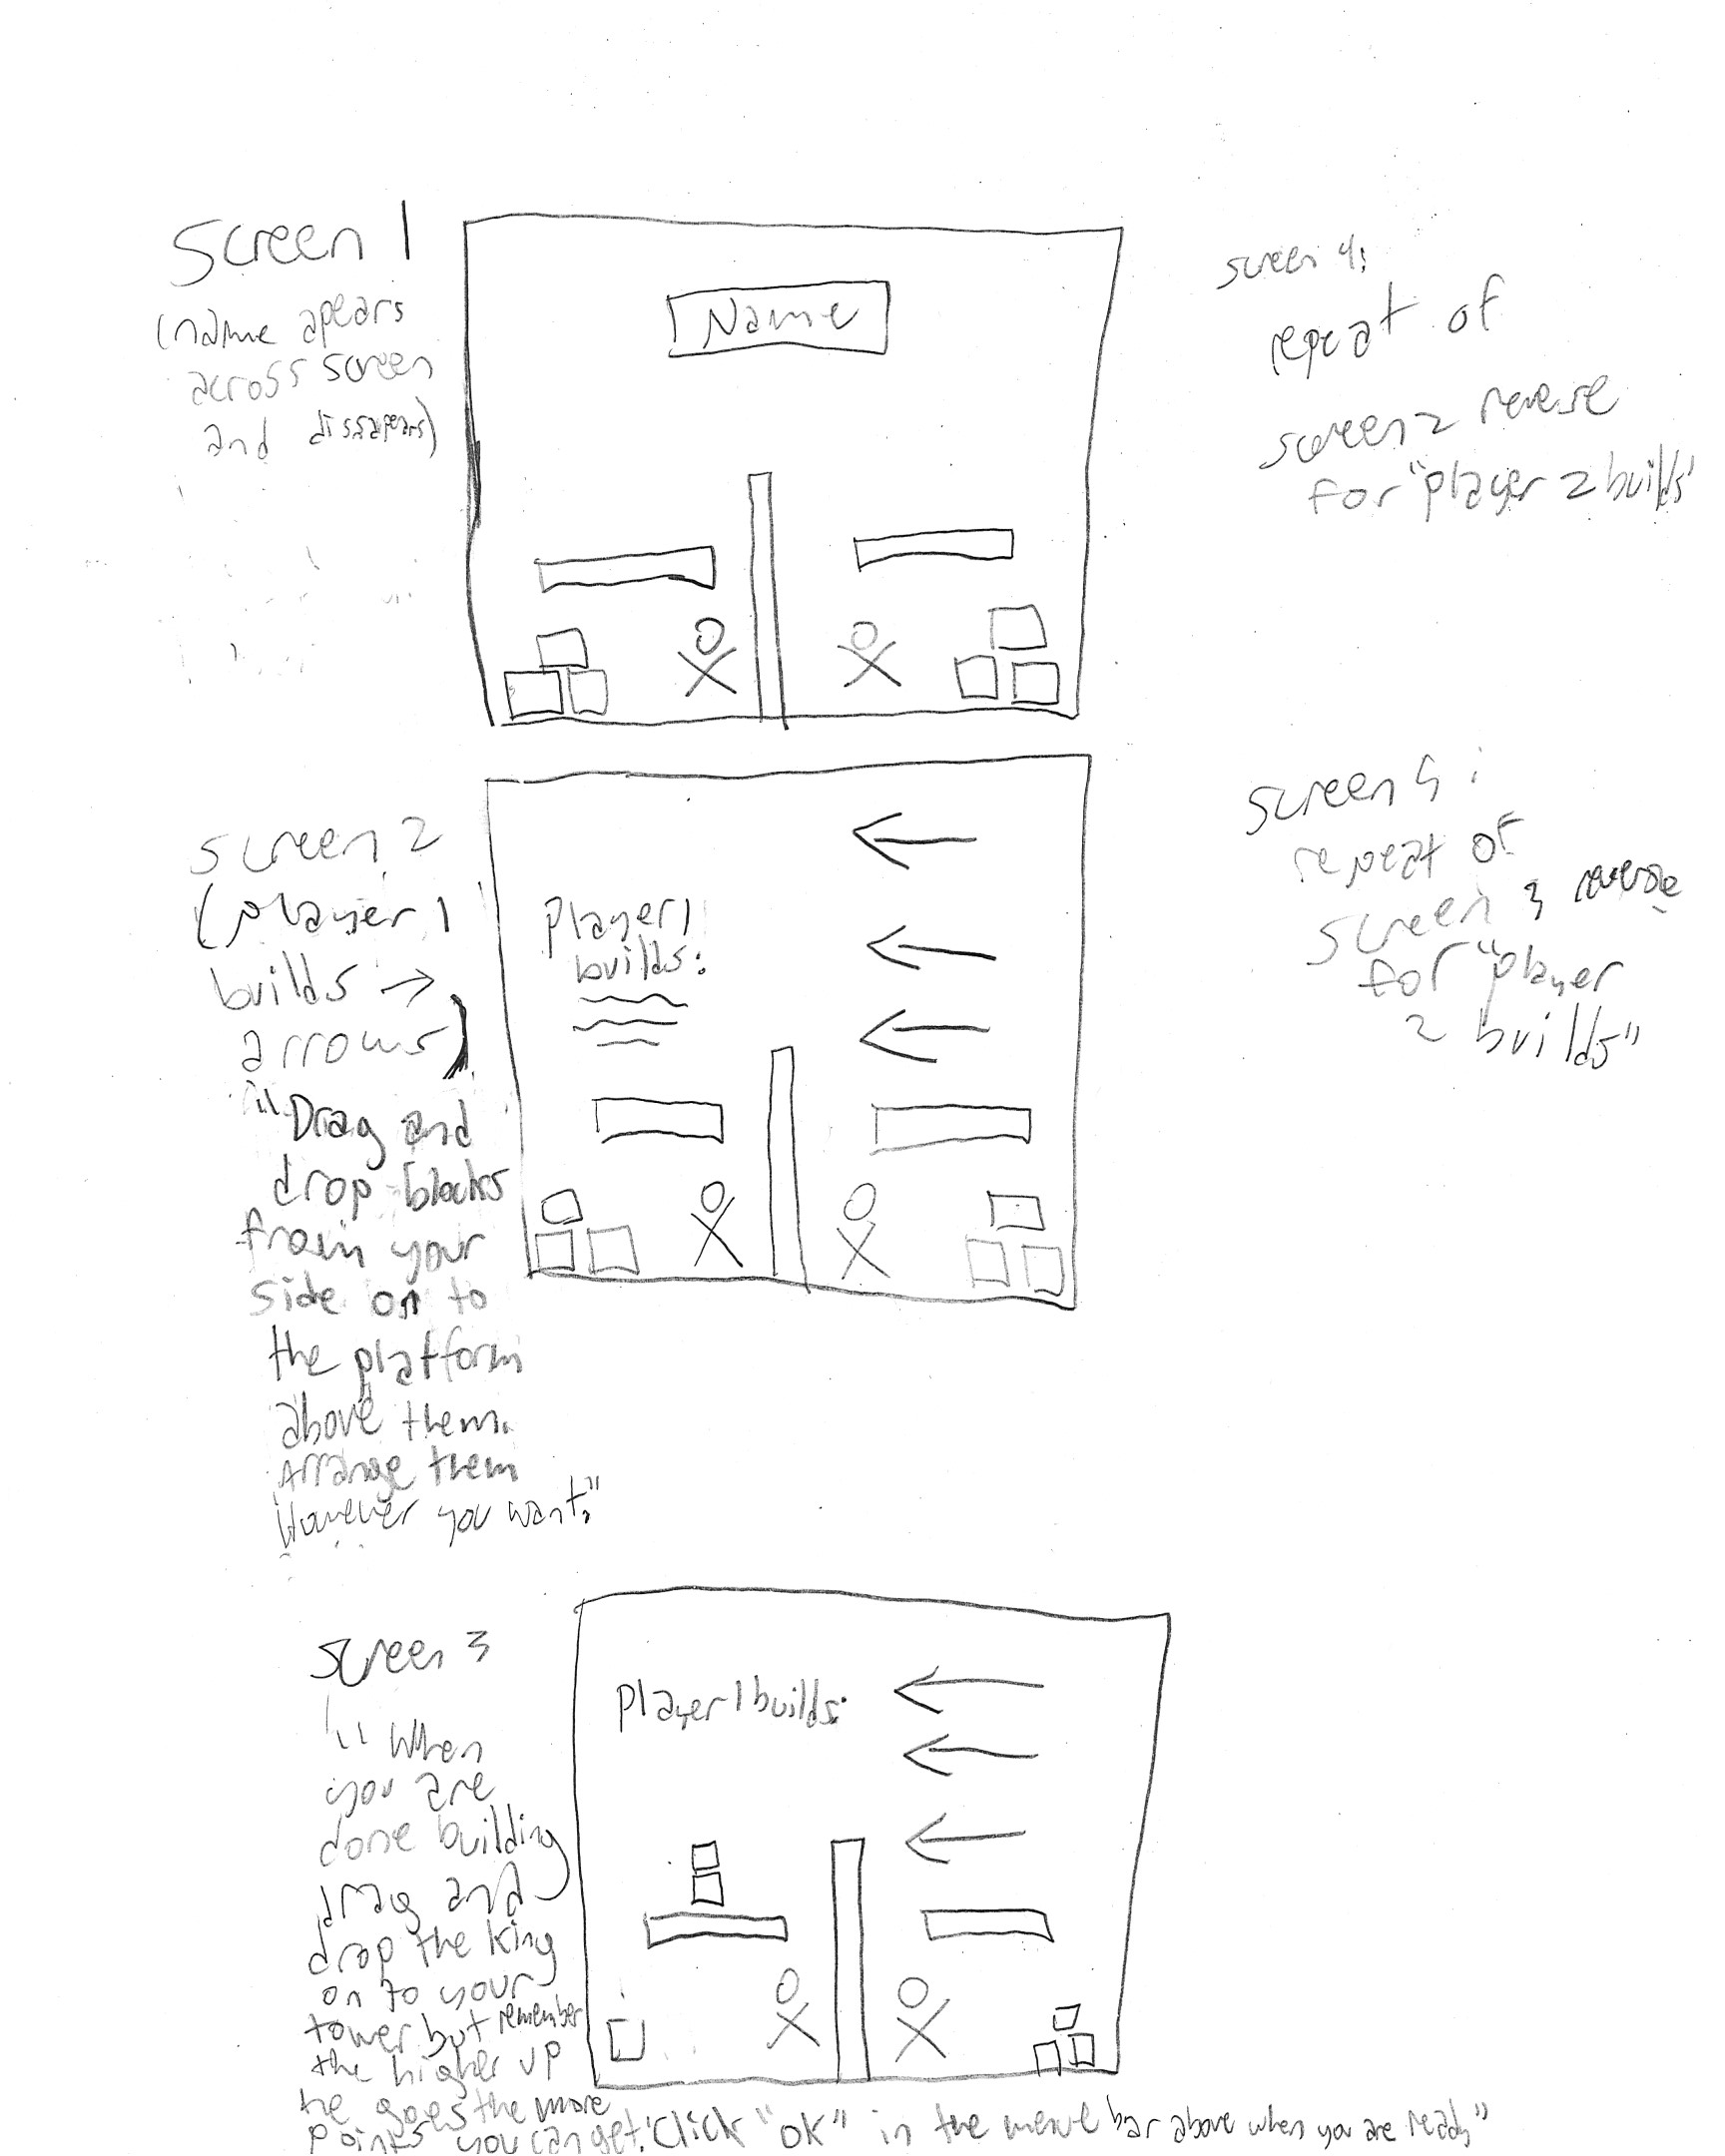 Screen 1
(name apears
across screen
and dissapears)
Name
screen 4:
repeat of
screen 2 reverse
for "player 2 builds"
screen 2
(player 1
builds →
arrows)
"Drag and
drop blocks
from your
side on to
the platform
above them.
Arrange them
However you want."
player 1
builds:
screen 5:
repeat of
screen 3 reverse
for "player
2 builds"
screen 3
"When
you are
done building
drag and
drop the king
on to your
tower but remember
the higher up
he goes the more
points you can get! Click "ok" in the menu bar above when you are ready"
player 1 builds: